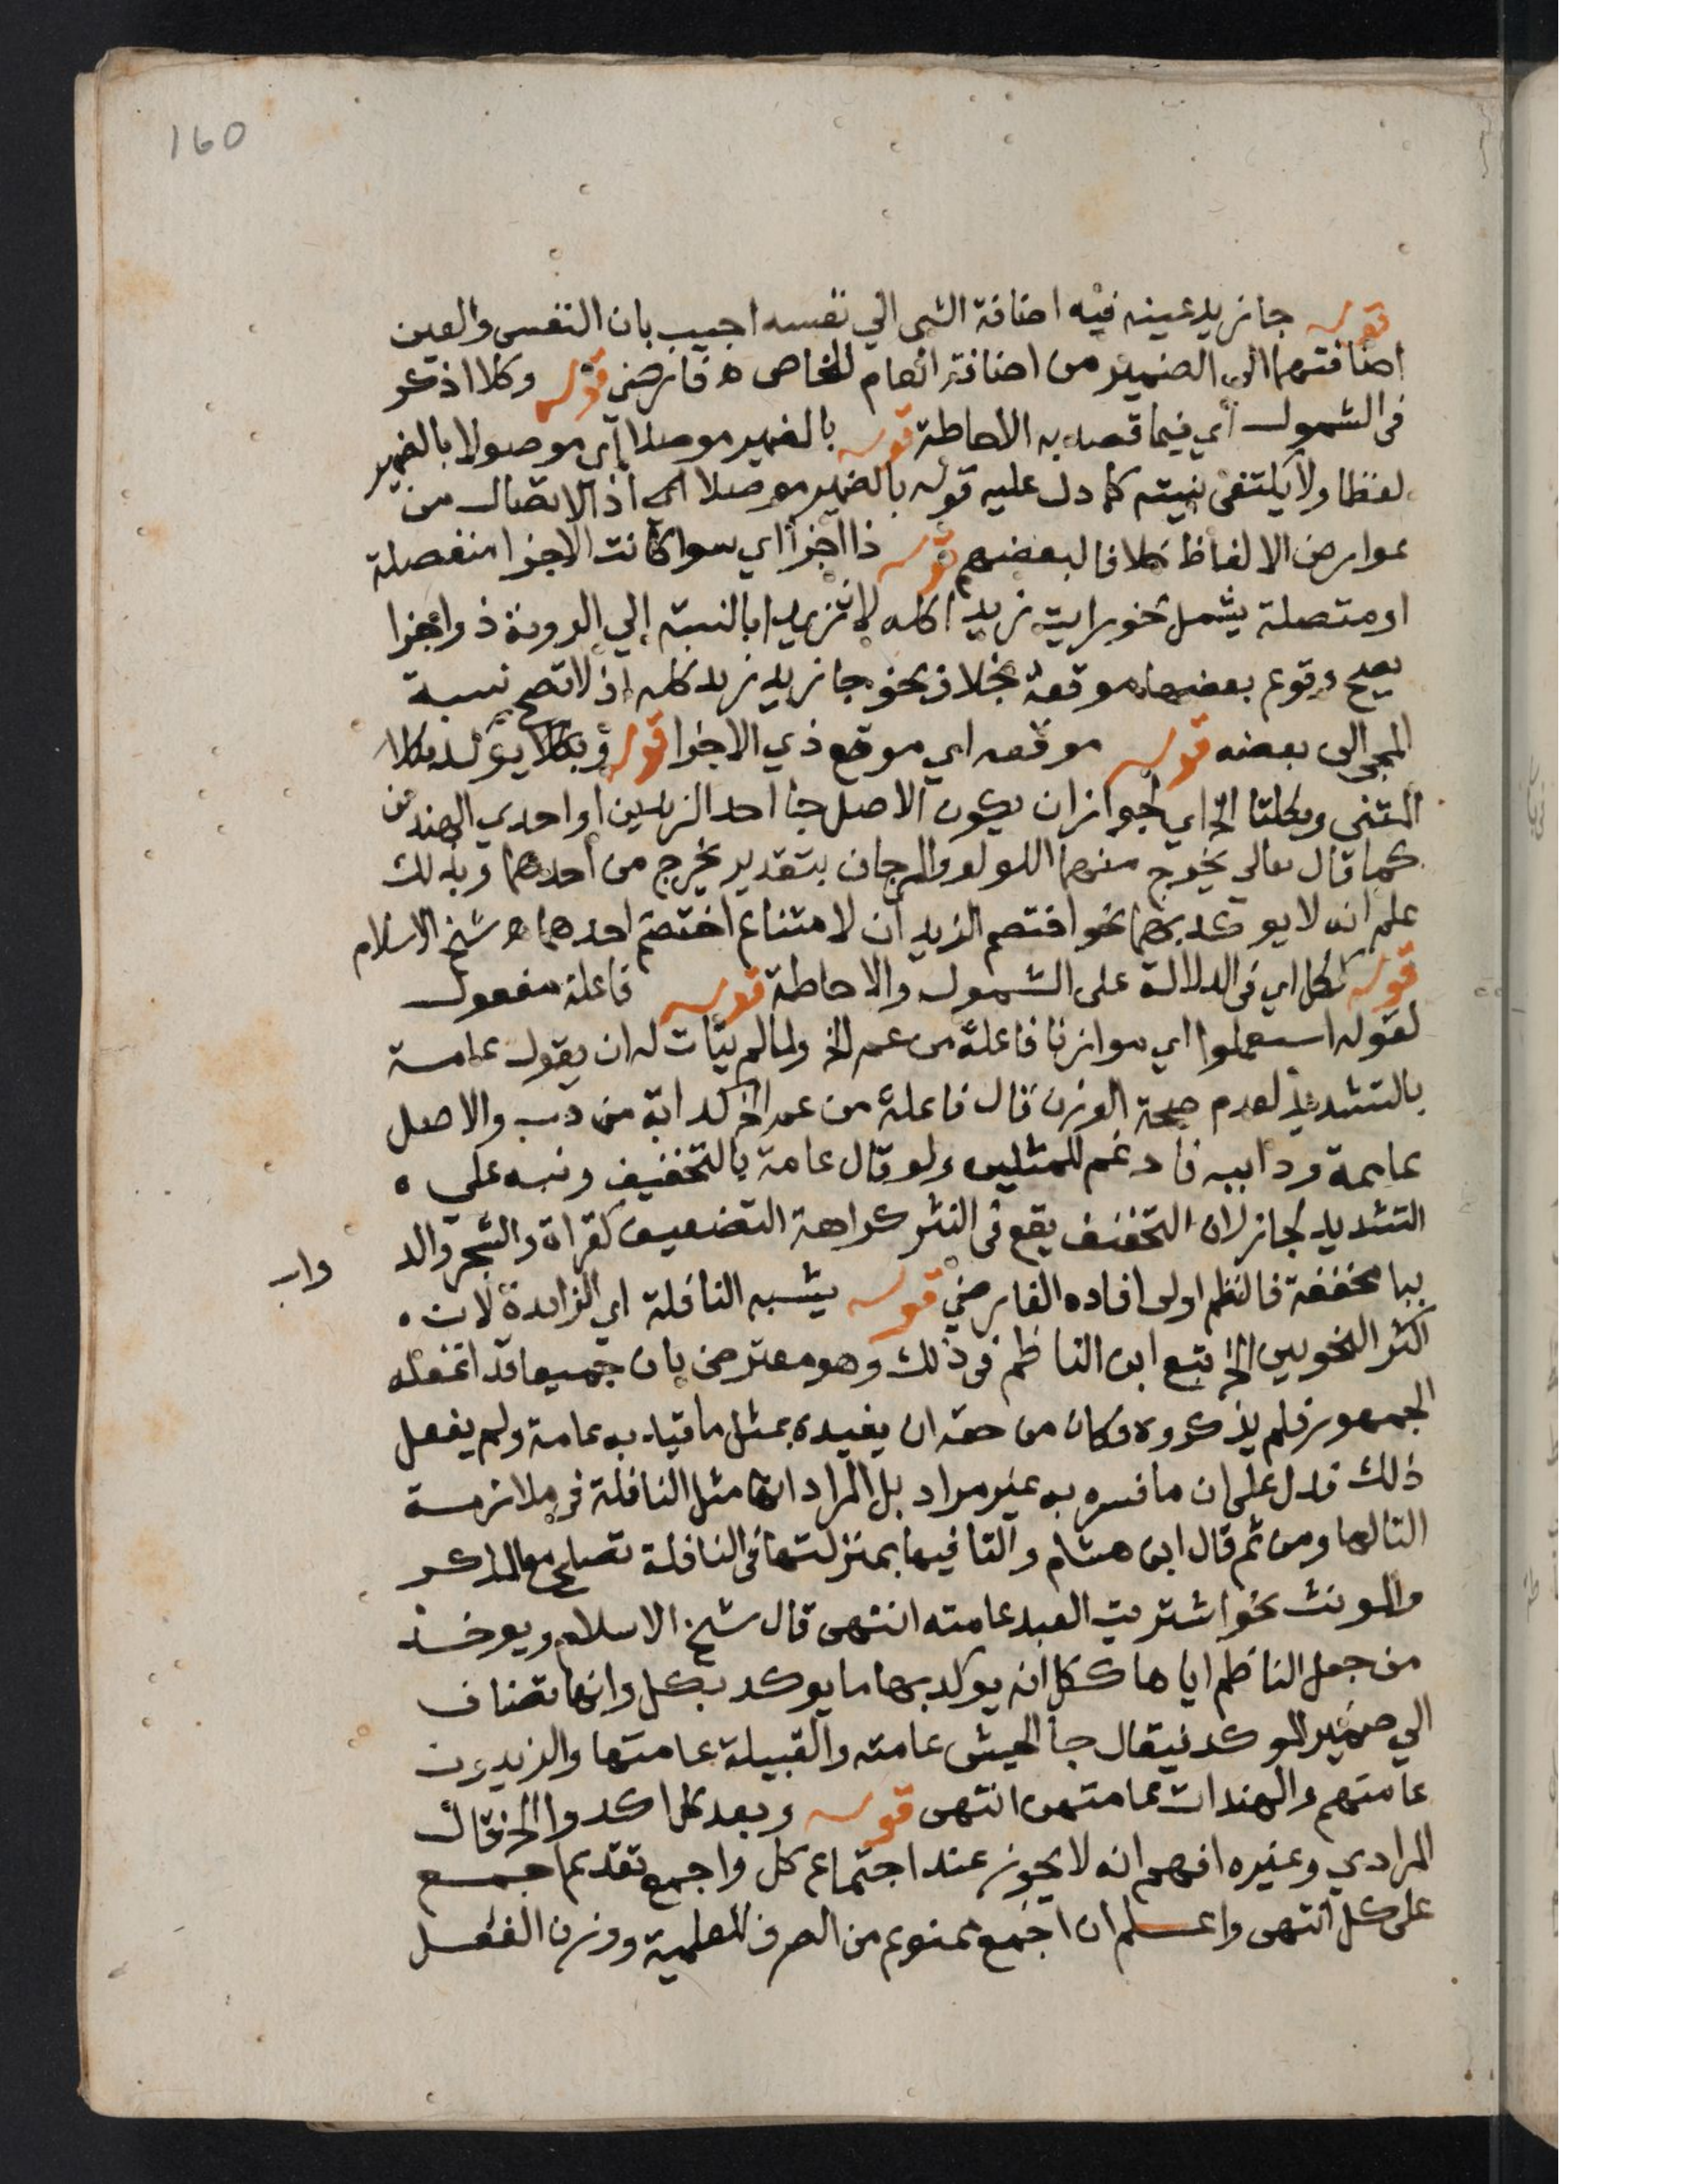 160
قوله جا زيد عينه فيه اضافة الشى الي نفسه اجيب بان النفس والعين
اضافتهما الى الضمير من اضافة العام للخاص ه فارضي قوله وكلا اذكر
فى الشمول اي فيما قصد به الاحاطة قوله بالضمير موصلا اي موصولا بالضمير
لفظا ولا يكتفى بنيته كما دل عليه قوله بالضمير موصلا اى اذ الاتصال من
عوارض الالفاظ خلافا لبعضهم قوله ذا اجزا اي سوا كانت الاجزا منفصلة
او متصلة يشمل نحو رايت زيدا كله لان زيدا بالنسبة إلي الروية ذو اجزا
يصح وقوع بعضها موقعه بخلاف نحو جا زيد زيد كله اذ لا تصح نسبة
المجى الى بعضه قوله موقعه اي موقع ذي الاجزا قوله وبكلا يوكد بكلا
المثنى وبكلتا الخ اي لجواز ان يكون الاصل جا احد الزيدين او احدي الهندين
كما قال تعالى يخرج منهما اللولو والمرجان بتقدير يخرج من احدهما وبذلك
علم انه لا يوكد بهما نحو اختصم الزيدان لامتناع اختصم احدهما ه شيخ الاسلام
قوله ككل اي فى الدلالة على الشمول والاحاطة قوله فاعلة مفعول
لقوله استعملوا اي موازنا فاعلة من عم الخ ولما لم يتات له ان يقول عامة
بالتشديد لعدم صحة الوزن قال فاعلة من عم الخ كدابة من دب والاصل
عاممة ودابيه فادغم للمثلين ولو قال عامة بالتخفيف ونبه على ه
التشديد لجاز لان التخفيف يقع فى النثر كراهة التضعيف كقراة والشجر والد
واب
ببا مخففة فالنظم اولى افاده الفارضي قوله يشبه النافلة اي الزايدة لان ه
اكثر النحويين الخ تبع ابن الناظم فى ذلك وهو معترض بان جميعا قد اغفله
الجمهور فلم يذكروه وكان من حقه ان يقيده بمثل ما قيد به عامة ولم يفعل
ذلك فدل على ان ما فسره به غير مراد بل المراد انها مثل النافلة فى ملازمة
التا لها ومن ثم قال ابن هشام والتا فيها بمنزلتها فى النافلة تصلح مع المذكر
والمونث نحو اشتريت العبد عامته انتهى قال شيخ الاسلام ويوخذ
من جعل الناظم اياها ككل انه يوكد بها ما يوكد بكل وانها تضاف
الي ضمير الموكد فيقال جا الجيش عامته والقبيلة عامتها والزيدون
عامتهم والهندات عامتهن انتهى قوله وبعد كل اكدوا الخ قال
المرادي وغيره افهم انه لا يجوز عند اجتماع كل واجمع تقديم اجمع
على كل انتهى واعلم ان اجمع ممنوع من الصرف للعلمية ووزن الفعل